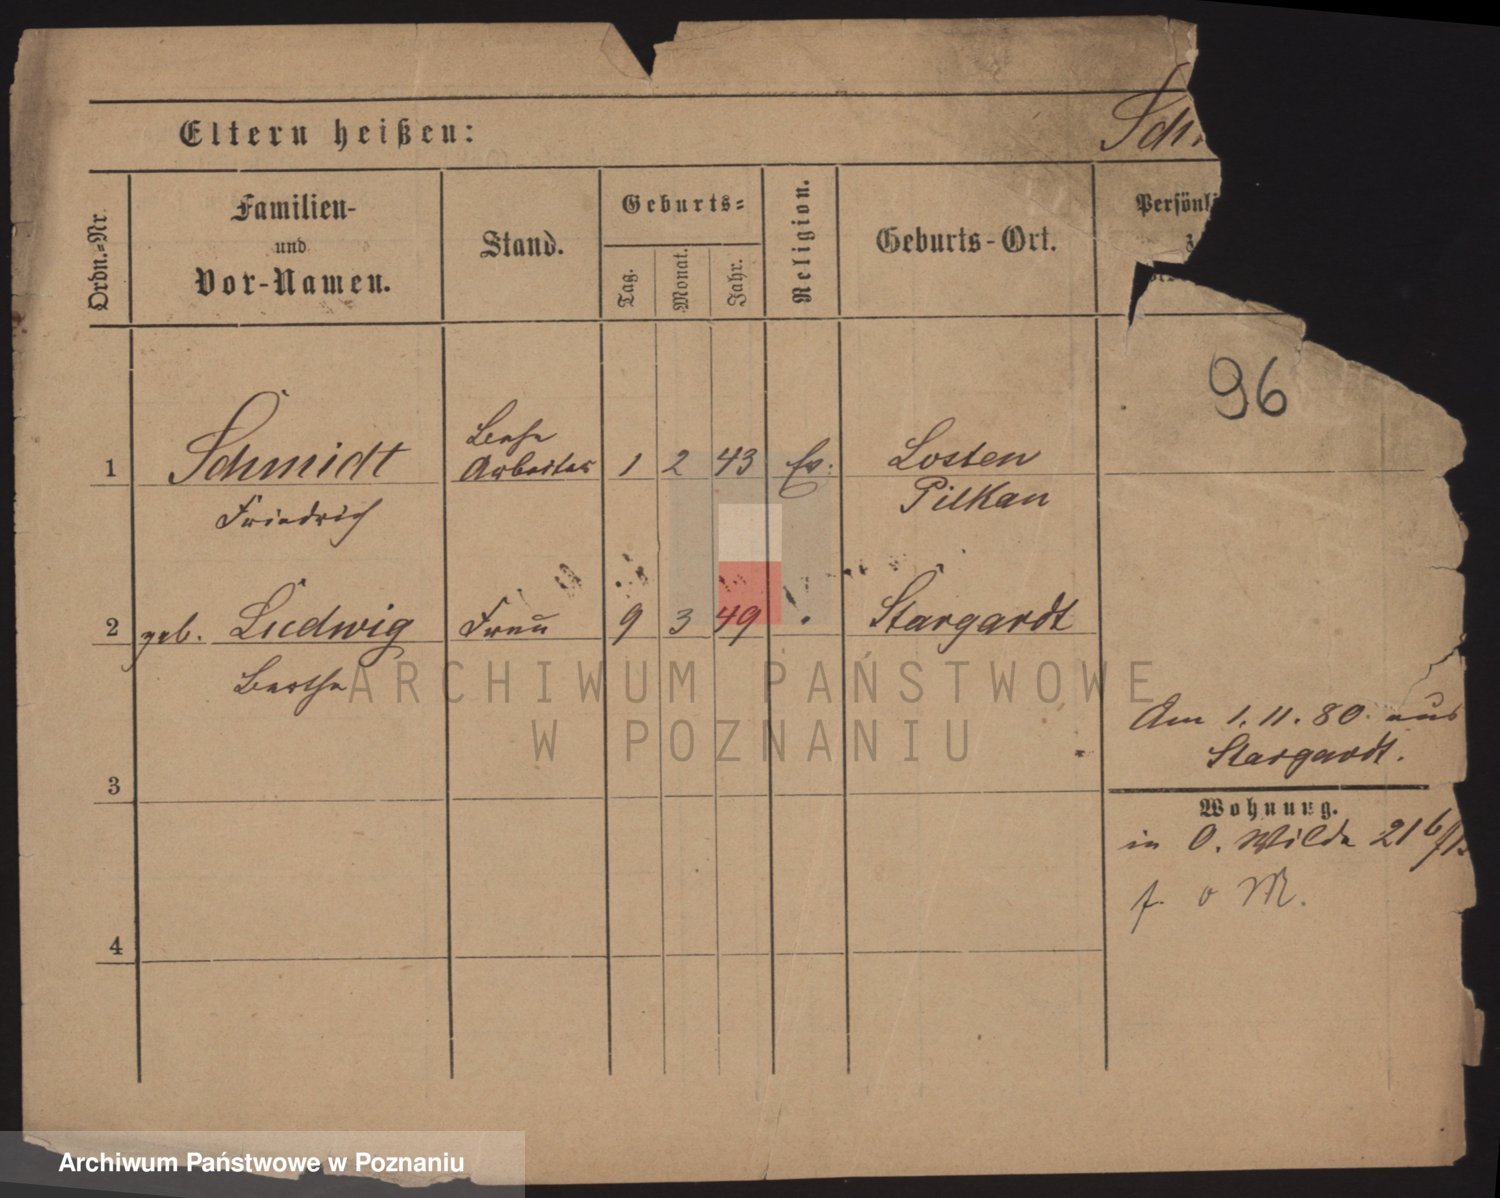 Eltern heißen:
Sch
Ordn.-Nr.
Familien-
und
Vor-Namen.
Stand.
Geburts-
Tag.
Monat.
Jahr.
Religion.
Geburts-Ort.
Persönl
96
1
Schmidt
Friedrich
Arbeiter
1 2 43 Ev.
Losten
Pilkan
2
geb. Ludwig
Bertha
Frau
9 3 49
Stargardt
Am 1. 11. 80. aus
Stargardt.
3
Wohnung.
in O. Wilda 21
f. o M.
4
ARCHIWUM PAŃSTWOWE
W POZNANIU
Archiwum Państwowe w Poznaniu